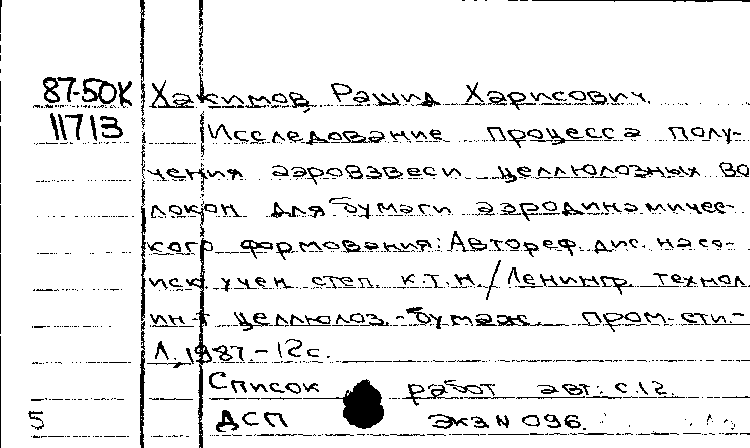 87-50К Хакимов, Рашид Харисович.
11713 Исследование процесса полу-
чения аэровзвеси целлюлозных во
локон для бумаги аэродинамичес-
кого формования: Автореф. дис. на со-
иск учен степ. к.т.н./Ленингр. технол
ин-т целлюлоз.-бумаж. пром-сти.-
Л., 1987.-12с.
Список работ авт.: с.12.
5 ДСП Экз N 096.